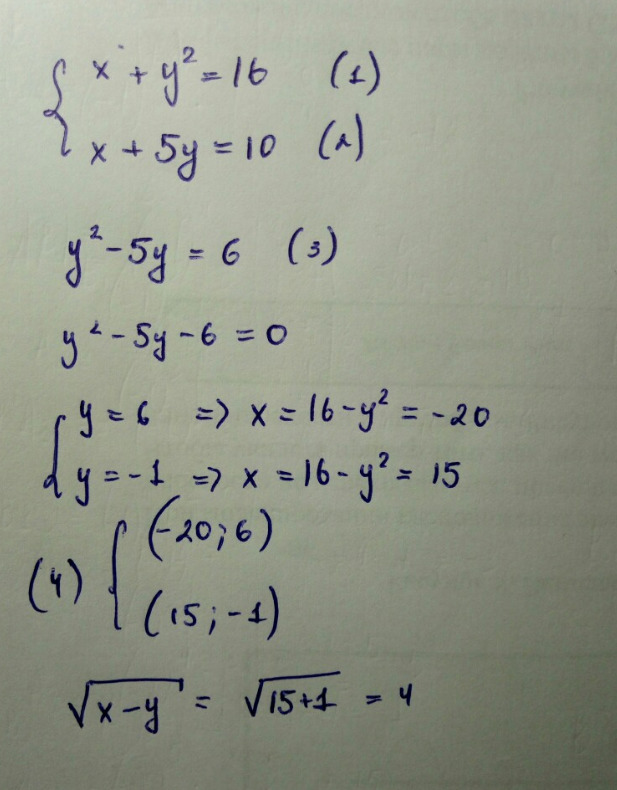 { x + y² = 16 (1)
x + 5y = 10 (2)
y² - 5y = 6 (3)
y² - 5y - 6 = 0
[ y = 6 => x = 16 - y² = -20
y = -1 => x = 16 - y² = 15
(4) [ (-20; 6)
(15; -1)
√(x-y) = √(15+1) = 4